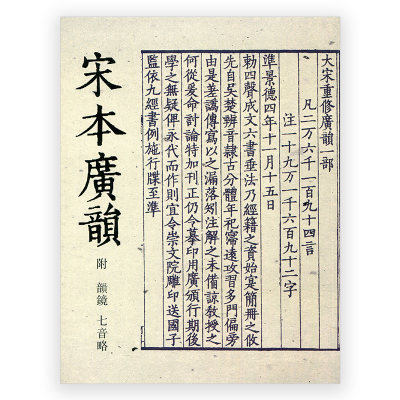 宋本廣韻
附 韻鏡 七音略
大宋重修廣韻一部
凡二万六千一百九十四言
注一十九万一千六百九十二字
準景德四年十一月十五日
勅四聲成文六書垂法乃經籍之資始寔簡冊之攸
先自吳楚辨音隸古分體年祀寖遠攻習多門偏旁
由是差譌傳寫以之漏落矧注解之未備諒教授之
何從爰命討論特加刊正仍令摹印用廣頒行期後
學之無疑俾永代而作則宜令崇文院雕印送國子
監依九經書例施行牒至準